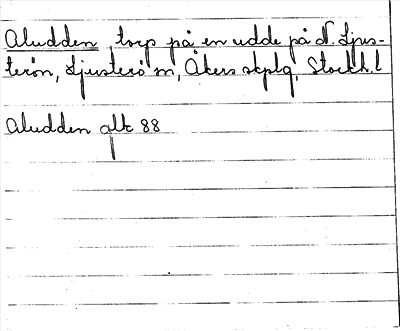 Aludden, torp på en udde på N. Ljus-
terön, Ljusterö sn, Åkers skplg, Stockh. l
Aludden gtk 88